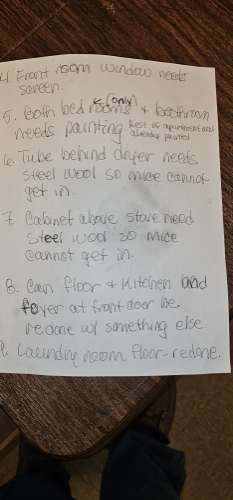 4. Front room window needs
screen.
5. Both bedrooms (only) & bathroom
needs painting Rest of apartment was
already painted
6. Tube behind dryer needs
steel wool so mice cannot
get in.
7. Cabinet above stove need
steel wool so mice
cannot get in.
8. Can floor & Kitchen and
foyer at front door be
redone w/ something else
9. Laundry room floor-redone.